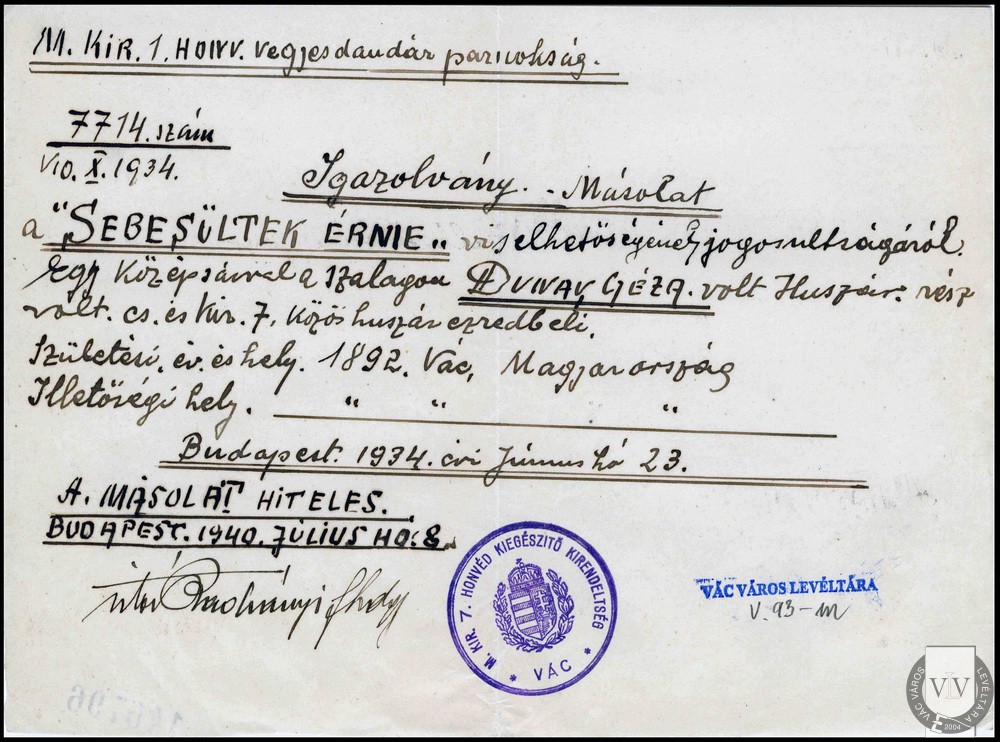 M. KIR. 1. HONV. vegyesdandár parnokság.
7714. szám
VIO. X. 1934.
Igazolvány. - Másolat
a "SEBESÜLTEK ÉRNIE" viselhetőségének jogosultságáról.
Egy középsávval a szalagon DUNAY GÉZA. volt Huszár. rész
volt. cs. és Kir. 7. közös huszár ezredbeli.
Születési. év. és hely. 1892. Vác, Magyarország
Illetőségi hely. " " "
Budapest. 1934. évi Június hó 23.
A. MÁSOLAT HITELES.
BUDAPEST. 1940. JÚLIUS HO. 8.
M. KIR. 7. HONVÉD KIEGÉSZITŐ KIRENDELTSÉG
* VÁC *
VÁC VÁROS LEVÉLTÁRA
V. 93-m
VÁC VÁROS LEVÉLTÁRA
VV
2004